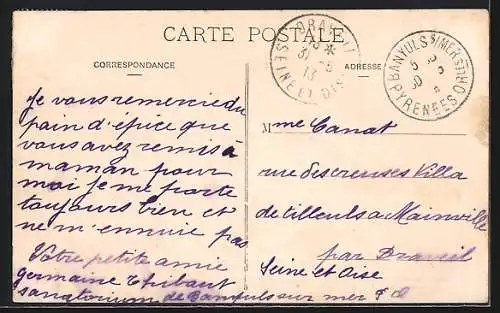 CARTE POSTALE
CORRESPONDANCE
ADRESSE
DRAVEIL
31 5
13
SEINE ET OISE
BANYULS S/MER
PYRENEES ORLES
Je vous remercie du
pain d'épice que
vous avez remis à
maman pour
moi je me porte
toujours bien et
ne m'ennuie pas
Votre petite amie
germaine Thibaut
sanatorium de Banyuls sur mer P O
Mme Canat
rue des creuses Villa
de tilleuls a Mainville
par Draveil
Seine et Oise